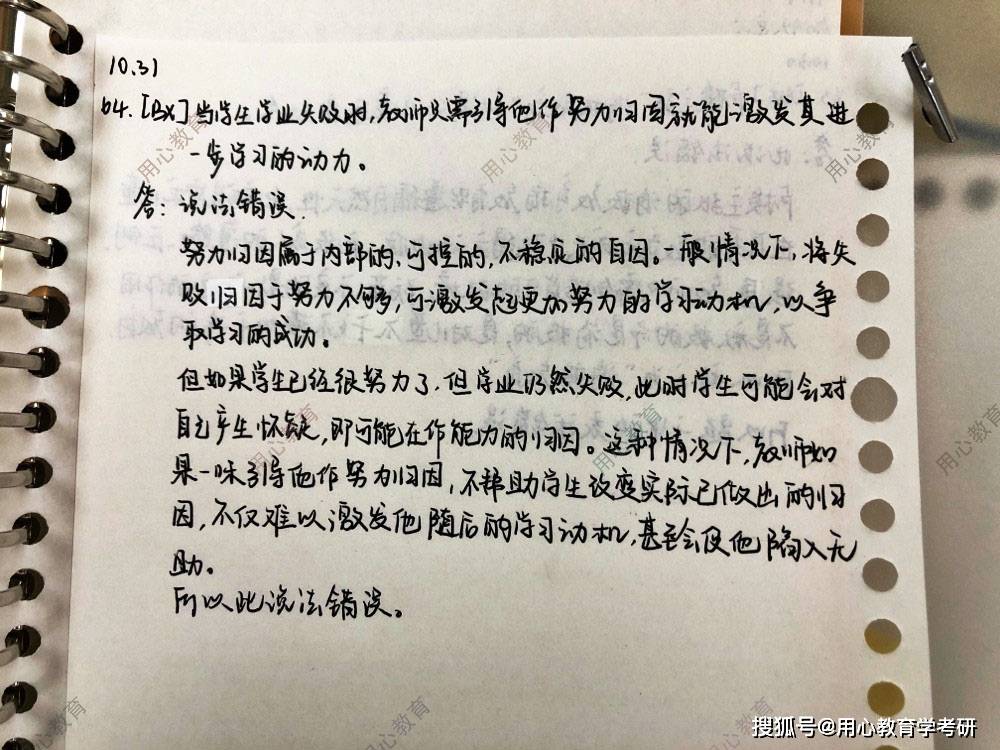 10.31
64.[BX]当学生学业失败时,教师只需引导他作努力归因就能激发其进
一步学习的动力。
答:说法错误.
努力归因属于内部的、可控的,不稳定的自因。一般情况下,将失
败归因于努力不够,可激发起更加努力的学习动机,以争
取学习的成功。
但如果学生已经很努力了,但学业仍然失败,此时学生可能会对
自己产生怀疑,即可能在作能力的归因。这种情况下,教师如
果一味引导他作努力归因,不帮助学生改变实际已做出的归
因,不仅难以激发他随后的学习动机,甚至会使他陷入无
助。
所以此说法错误。
用心教育
搜狐号@用心教育学考研